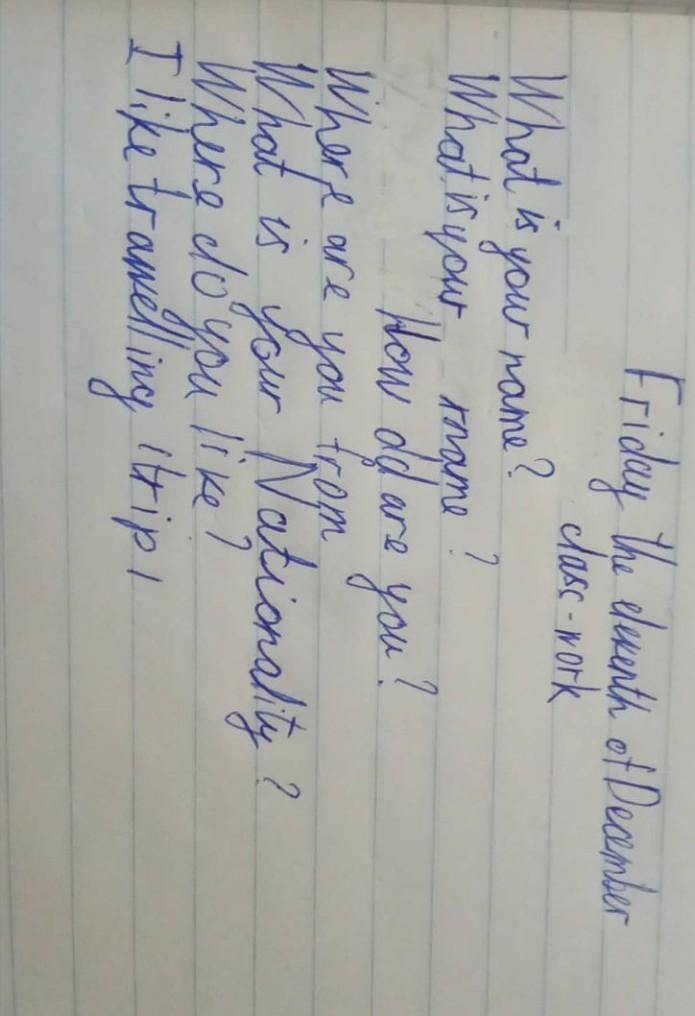 Friday the eleventh of December
class-work
What is your name?
What is your name?
How old are you?
Where are you from
What is your Nationality?
Where do you like?
I like travelling /trip/